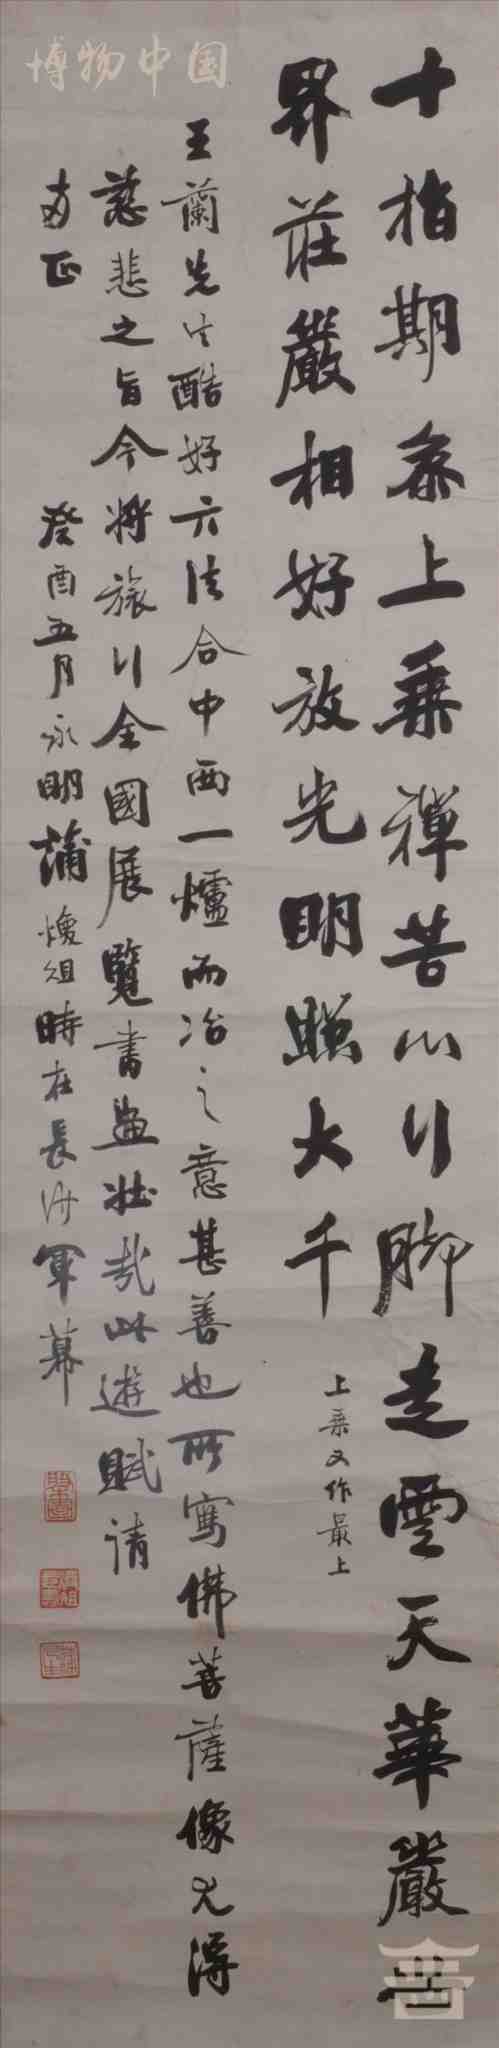 十指期參上乘禪苦心行脚走雲天華嚴世
界莊嚴相好放光明照大千
上乘又作最上
玉蘭先生酷好六法合中西一爐而冶之意甚善也所寫佛菩薩像尤得
慈悲之旨今將旅行全國展覽書畫壯哉此遊賦請
两正
癸酉五月永明蒲煥俎時在長沙軍幕
博物中国